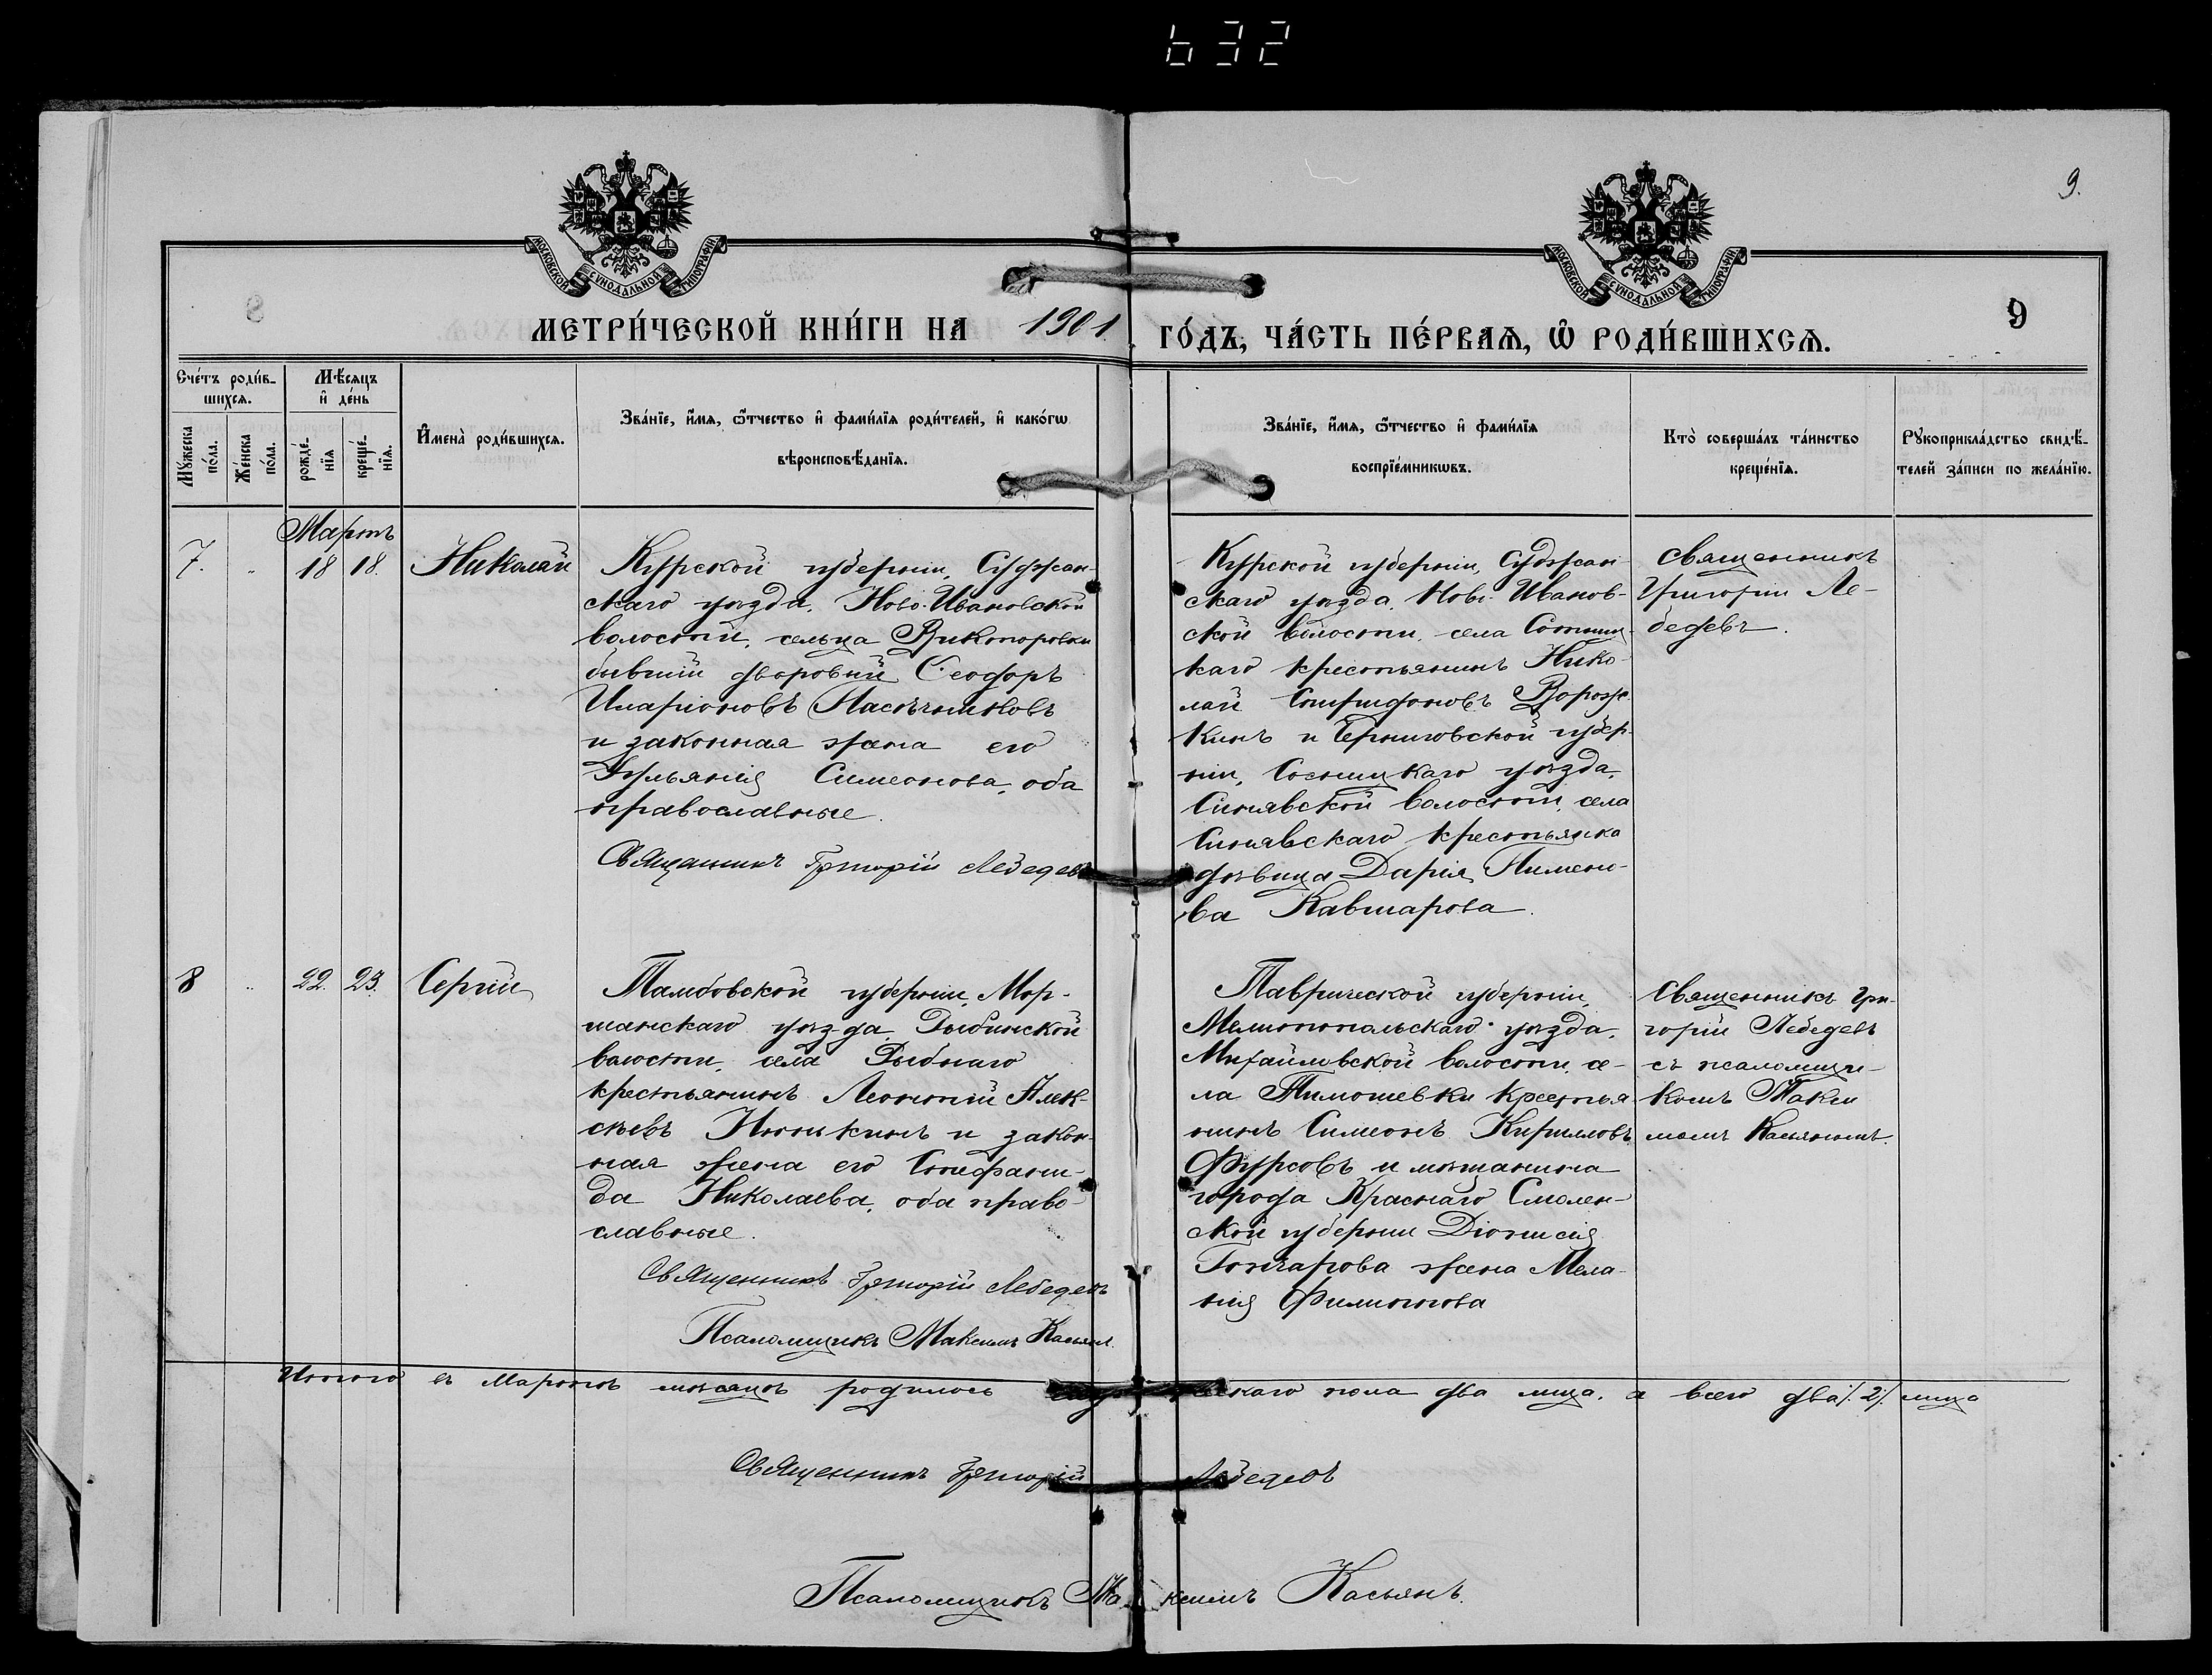 632
9.
МОСКОВСКОЙ СѴНОДАЛЬНОЙ ТИПОГРАФІИ
МОСКОВСКОЙ СѴНОДАЛЬНОЙ ТИПОГРАФІИ
МЕТРИ́ЧЕСКОЙ КНИ́ГИ НА 1901. ГО́ДЪ, ЧА́СТЬ ПЕ́РВАѦ, Ѽ РОДИ́ВШИХСѦ.
9
Сче́тъ роди́в-
шихсѧ.
Мѣ́сяцъ
и҆ де́нь
Мꙋ́жеска
по́ла.
Же́нска
по́ла.
рожде́-
нїѧ
креще́-
нїѧ.
И҆мена̀ роди́вшихсѧ.
Зва́нїе, и҆́мѧ, ѻ҆́тчество и҆ фами́лїѧ роди́телей, и҆ како́гѡ
вѣроисповѣ́данїѧ.
Зва́нїе, и҆́мѧ, ѻ҆́тчество и҆ фами́лїѧ
воспрїе́мникѡвъ.
Кто̀ соверша́лъ та́инство
креще́нїѧ.
Рꙋкоприкла́дство свидѣ́-
телей за́писи по жела́нїю.
Мартъ
7. " 18 18. Николай
Курской губерніи, Суджан-
скаго уѣзда, Ново-Ивановской
волости, сельца Викторовки
бывшій дворовый Ѳеодоръ
Иларіоновъ Пасѣчниковъ
и законная жена его
Іульянія Симеонова, оба
православные.
Священникъ Григорій Лебедевъ
Курской губерніи, Суджан-
скаго уѣзда, Ново-Иванов-
ской волости, села Сотниц-
каго крестьянинъ Нико-
лай Спиридоновъ Ворож-
кинъ и Черниговской губер-
ніи, Сосницкаго уѣзда,
Синявской волости, села
Синявскаго крестьянка
дѣвица Дарія Пимено-
ва Кавшарова.
Священникъ
Григорій Ле-
бедевъ.
8 " 22. 23. Сергій
Тамбовской губерніи, Мор-
шанскаго уѣзда, Рыбинской
волости, села Рыбнаго
крестьянинъ Леонтій Алек-
сѣевъ Нюнькинъ и закон-
ная жена его Стефани-
да Николаева, оба право-
славные.
Священникъ Григорій Лебедевъ
Псаломщикъ Максимъ Касьян.
Таврической губерніи,
Мелитопольскаго уѣзда,
Михайловской волости, се-
ла Тимошевки крестья-
нинъ Симеонъ Кирилловъ
Фурсовъ и мѣщанина
города Краснаго Смолен-
ской губерніи Діонисія
Гончарова жена Мела-
нія Филиппова
Священникъ Гри-
горій Лебедевъ
съ псаломщи-
комъ Макси
момъ Касьяномъ.
Итого въ Мартѣ мѣсяцѣ родилось скаго пола два лица, а всего два /. 2 /. лица
Священникъ Григорій Лебедевъ
Псаломщикъ Максимъ Касьянъ.